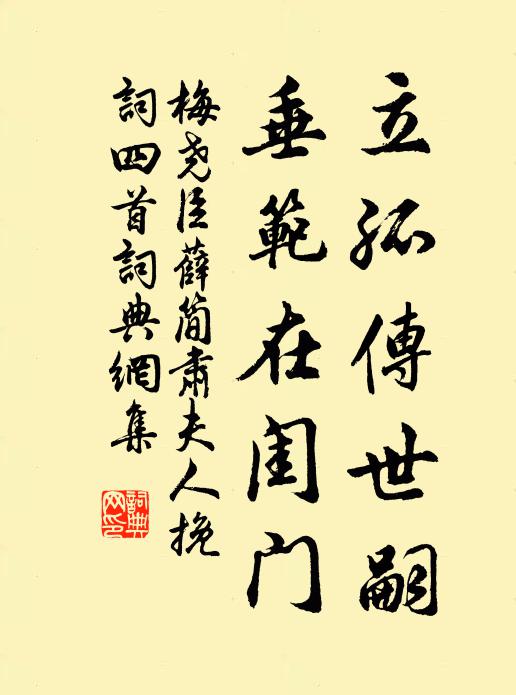 立孤傳世嗣
垂範在闺门
梅尧臣薛簡肅夫人挽
詞四首詞典網集
詞典
网印